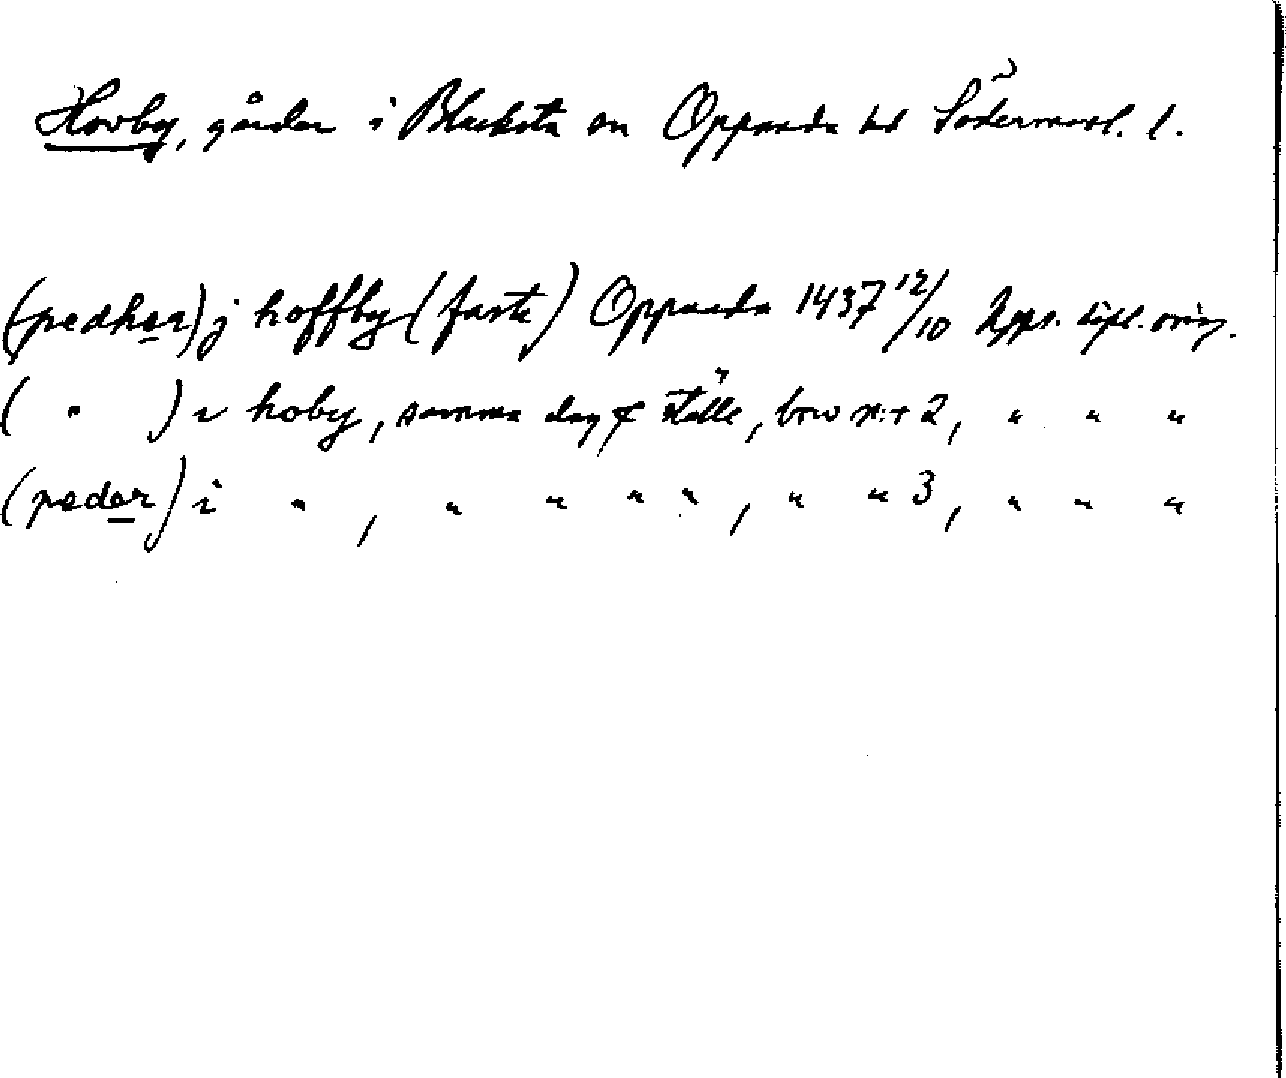 Hovby, gårdar i Blacksta sn Oppunda hd Södermanl. l.
(pedher) j hoffby (faste) Oppunda 1437 12/10 Upps. dipl. orig.
( " ) i hoby, samma dag & ställe, brev nr 2, " " "
(peder) i " , " " " " , " " 3, " " "